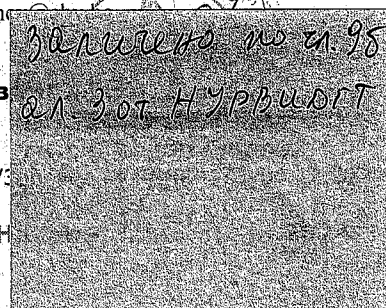 Заличено по чл. 9б
ал. 3 от НУРВИДГТ